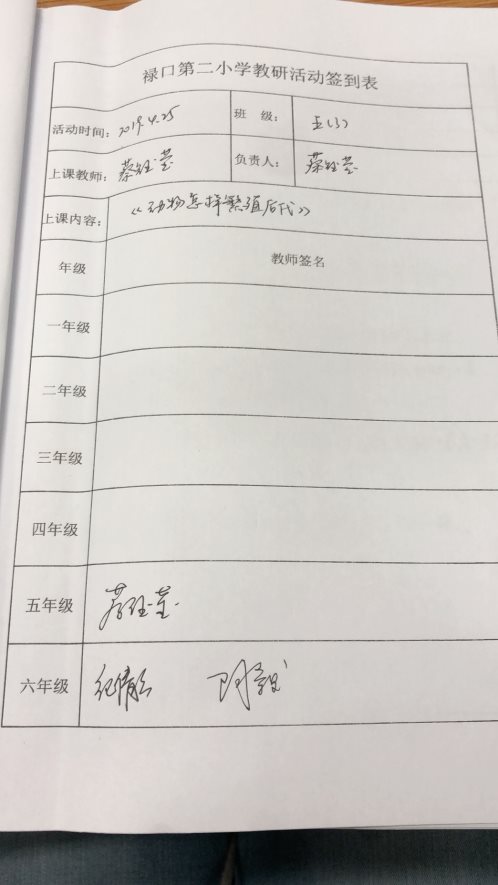 禄口第二小学教研活动签到表
活动时间：2019.4.25 班 级：五(3)
上课教师：蔡钰莹 负责人：蔡钰莹
上课内容：《动物怎样繁殖后代》
年级 教师签名
一年级
二年级
三年级
四年级
五年级 蔡钰莹
六年级